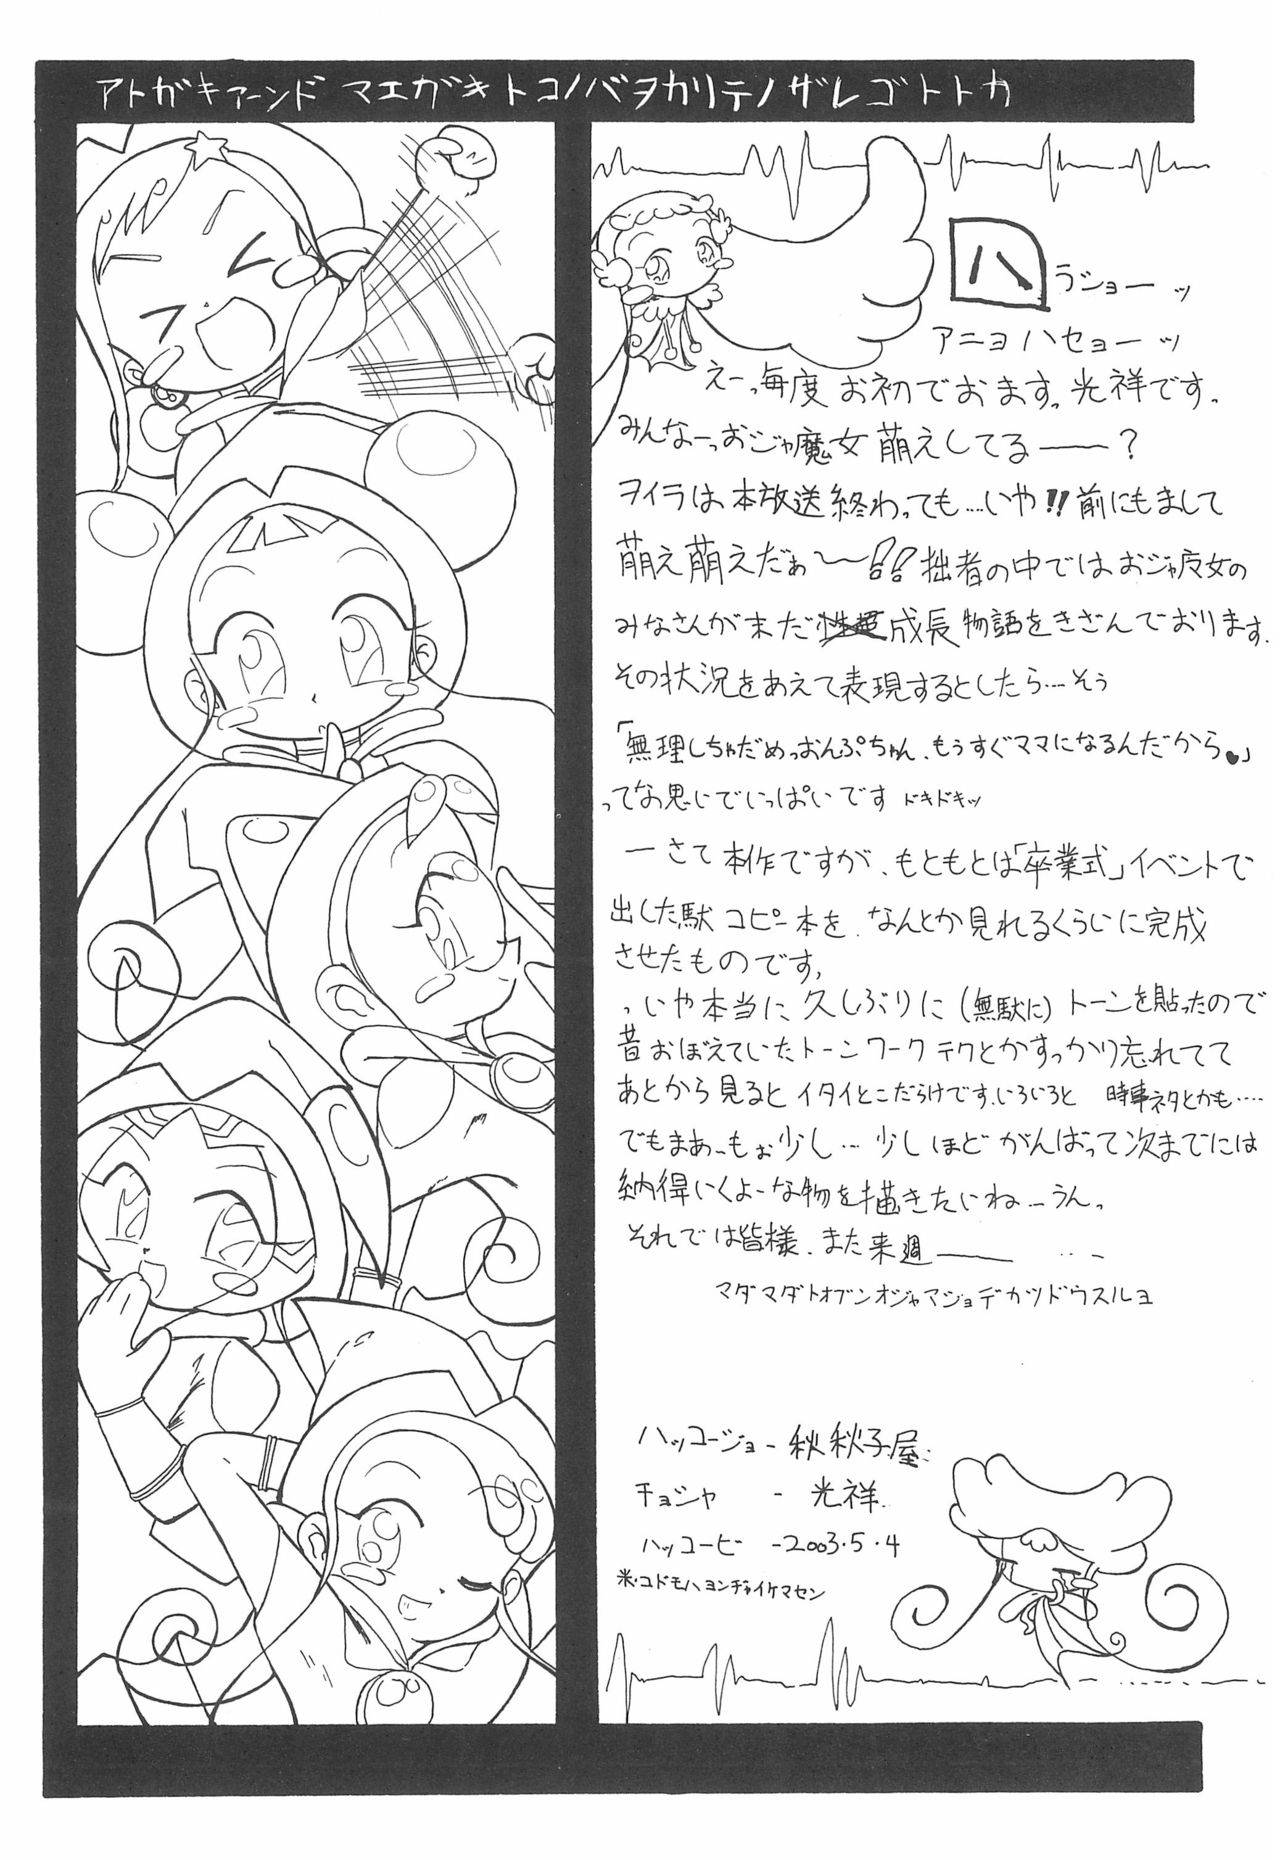 アトガキアーンド マエガキトコノバヲカリテノザレゴトトカ
ハラショーッ
アニョハセョーッ
えーっ毎度お初でおます。光祥です。
みんなーっおジャ魔女萌えしてるー?
ヲイラは本放送終わっても....いや!!前にもまして
萌え萌えだぁ〜!!拙者の中ではおジャ魔女の
みなさんが未だ成長物語をきざんでおります。
その状況をあえて表現するとしたら...そう
「無理しちゃだめっおんぷちゃん、もうすぐママになるんだから♥」
ってな感じでいっぱいです ドキドキッ
ーさて本作ですが、もともとは「卒業式」イベントで
出した駄コピー本を、なんとか見れるくらいに完成
させたものです。
、いや本当に久しぶりに(無駄に)トーンを貼ったので
昔おぼえていたトーンワークテクとかすっかり忘れてて
あとから見るとイタイとこだらけです、いろいろと 時事ネタとかも....
でもまあーもぉ少し...少しほどがんばって次までには
納得いくよーな物を描きたいねーうん。
それでは皆様、また来週ー ...-
マダマダトオブンオジャマジョデカツドウスルヨ
ハッコージョ - 秋秋子屋
チョシャ - 光祥
ハッコービ - 2003・5・4
米・コドモハヨンヂャイケマセン